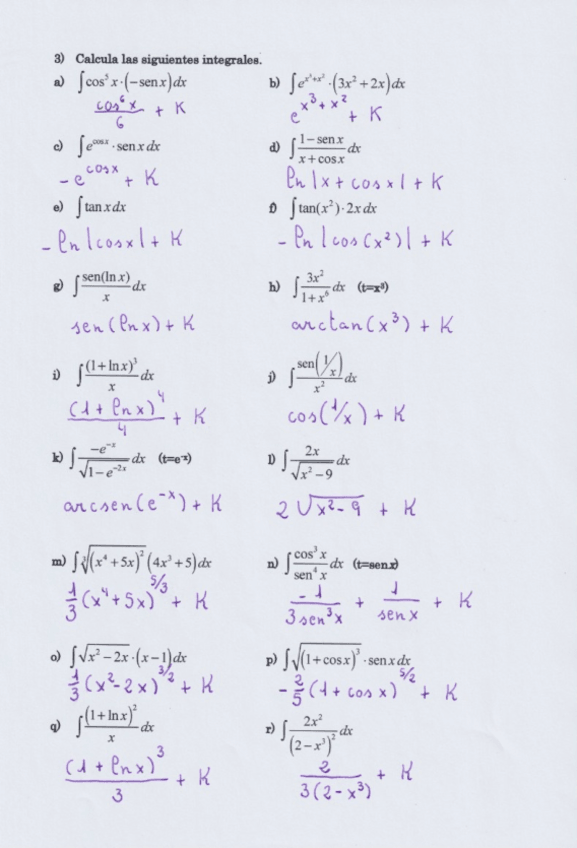 3) Calcula las siguientes integrales.
a) ∫cos⁵ x·(−sen x)dx
cos⁶x/6 + K
b) ∫e^(x³+x²)·(3x² + 2x)dx
e^(x³+x²) + K
c) ∫e^(cos x)·sen x dx
−e^(cosx) + K
d) ∫(1−sen x)/(x+cos x) dx
ln|x + cos x| + K
e) ∫tan x dx
−ln|cosx| + K
f) ∫tan(x²)·2x dx
−ln|cos(x²)| + K
g) ∫sen(ln x)/x dx
sen(ln x) + K
h) ∫3x²/(1+x⁶) dx (t=x³)
arctan(x³) + K
i) ∫(1+ln x)³/x dx
(1+ ln x)⁴/4 + K
j) ∫sen(1/x)/x² dx
cos(1/x) + K
k) ∫−e^(−x)/√(1−e^(−2x)) dx (t=e^-x)
arcsen(e^(−x)) + K
l) ∫2x/√(x²−9) dx
2√(x²−9) + K
m) ∫∛((x⁴+5x)²)(4x³+5)dx
1/3(x⁴+5x)^(5/3) + K
n) ∫cos³ x/sen⁴ x dx (t=sen x)
−1/(3sen³x) + 1/sen x + K
o) ∫√(x²−2x)·(x−1)dx
1/3(x²−2x)^(3/2) + K
p) ∫√((1+cos x)³)·sen x dx
−2/5(1+ cos x)^(5/2) + K
q) ∫(1+ln x)²/x dx
(1+ ln x)³/3 + K
r) ∫2x²/(2−x³)² dx
2/(3(2−x³)) + K